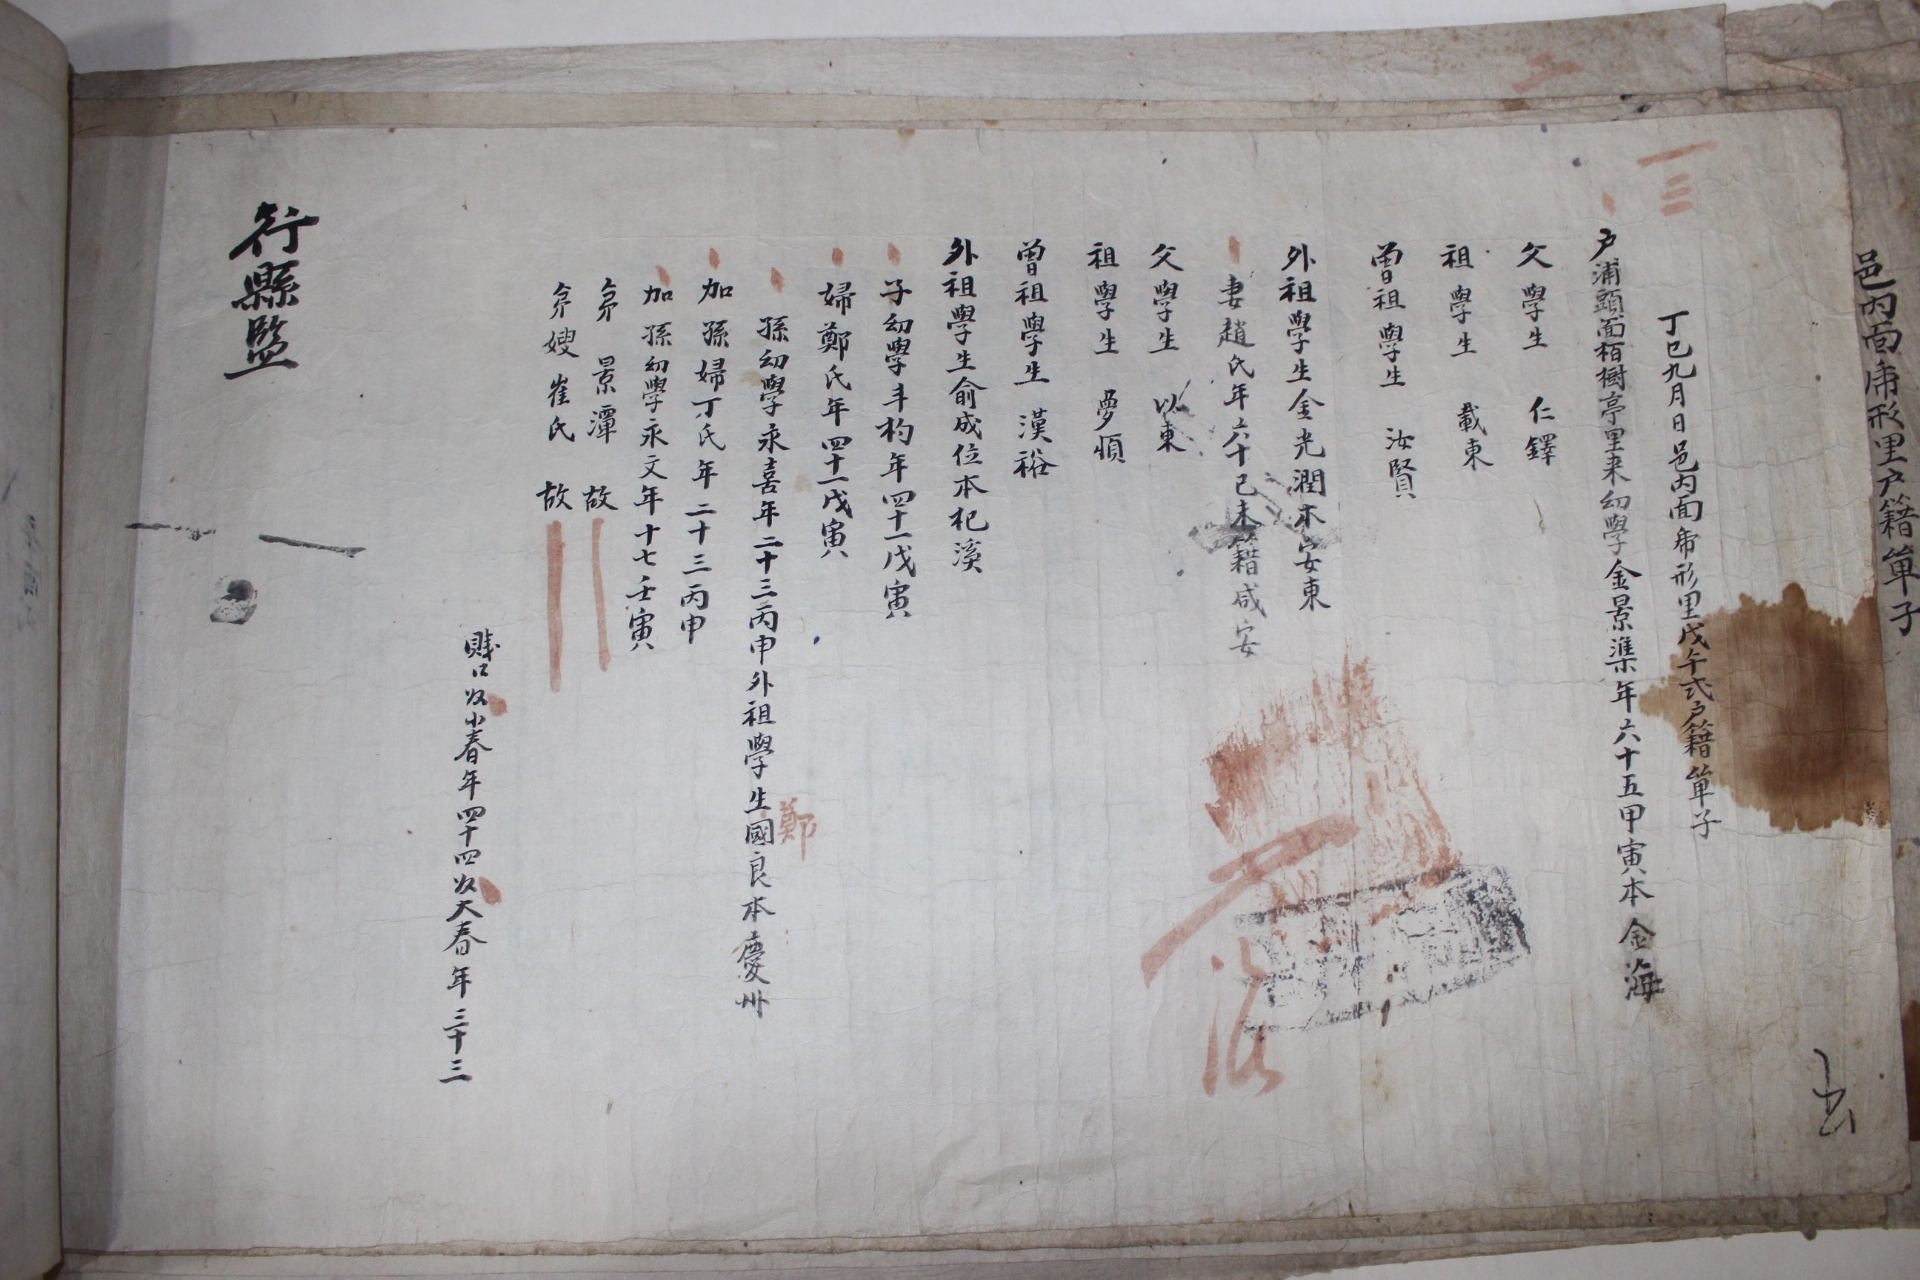 邑內面席形里戶籍單子
丁巳九月日邑內面席形里戊午式戶籍單子
戶浦頭面栢樹亭里來幼學金景準年六十五甲寅本金海
父學生 仁鐸
祖學生 載東
曾祖學生 汝賢
外祖學生金光潤本安東
妻趙氏年六十己未籍咸安
父學生 以東
祖學生 夢順
曾祖學生 漢裕
外祖學生俞成位本杞溪
子幼學斗杓年四十一戊寅
婦鄭氏年四十一戊寅
孫幼學永喜年二十三丙申外祖學生國良本慶州
鄭
加孫婦丁氏年二十三丙申
加孫幼學永文年十七壬寅
弟 景潭 故
弟嫂崔氏 故
賤口奴小春年四十四奴大春年三十三
行縣監